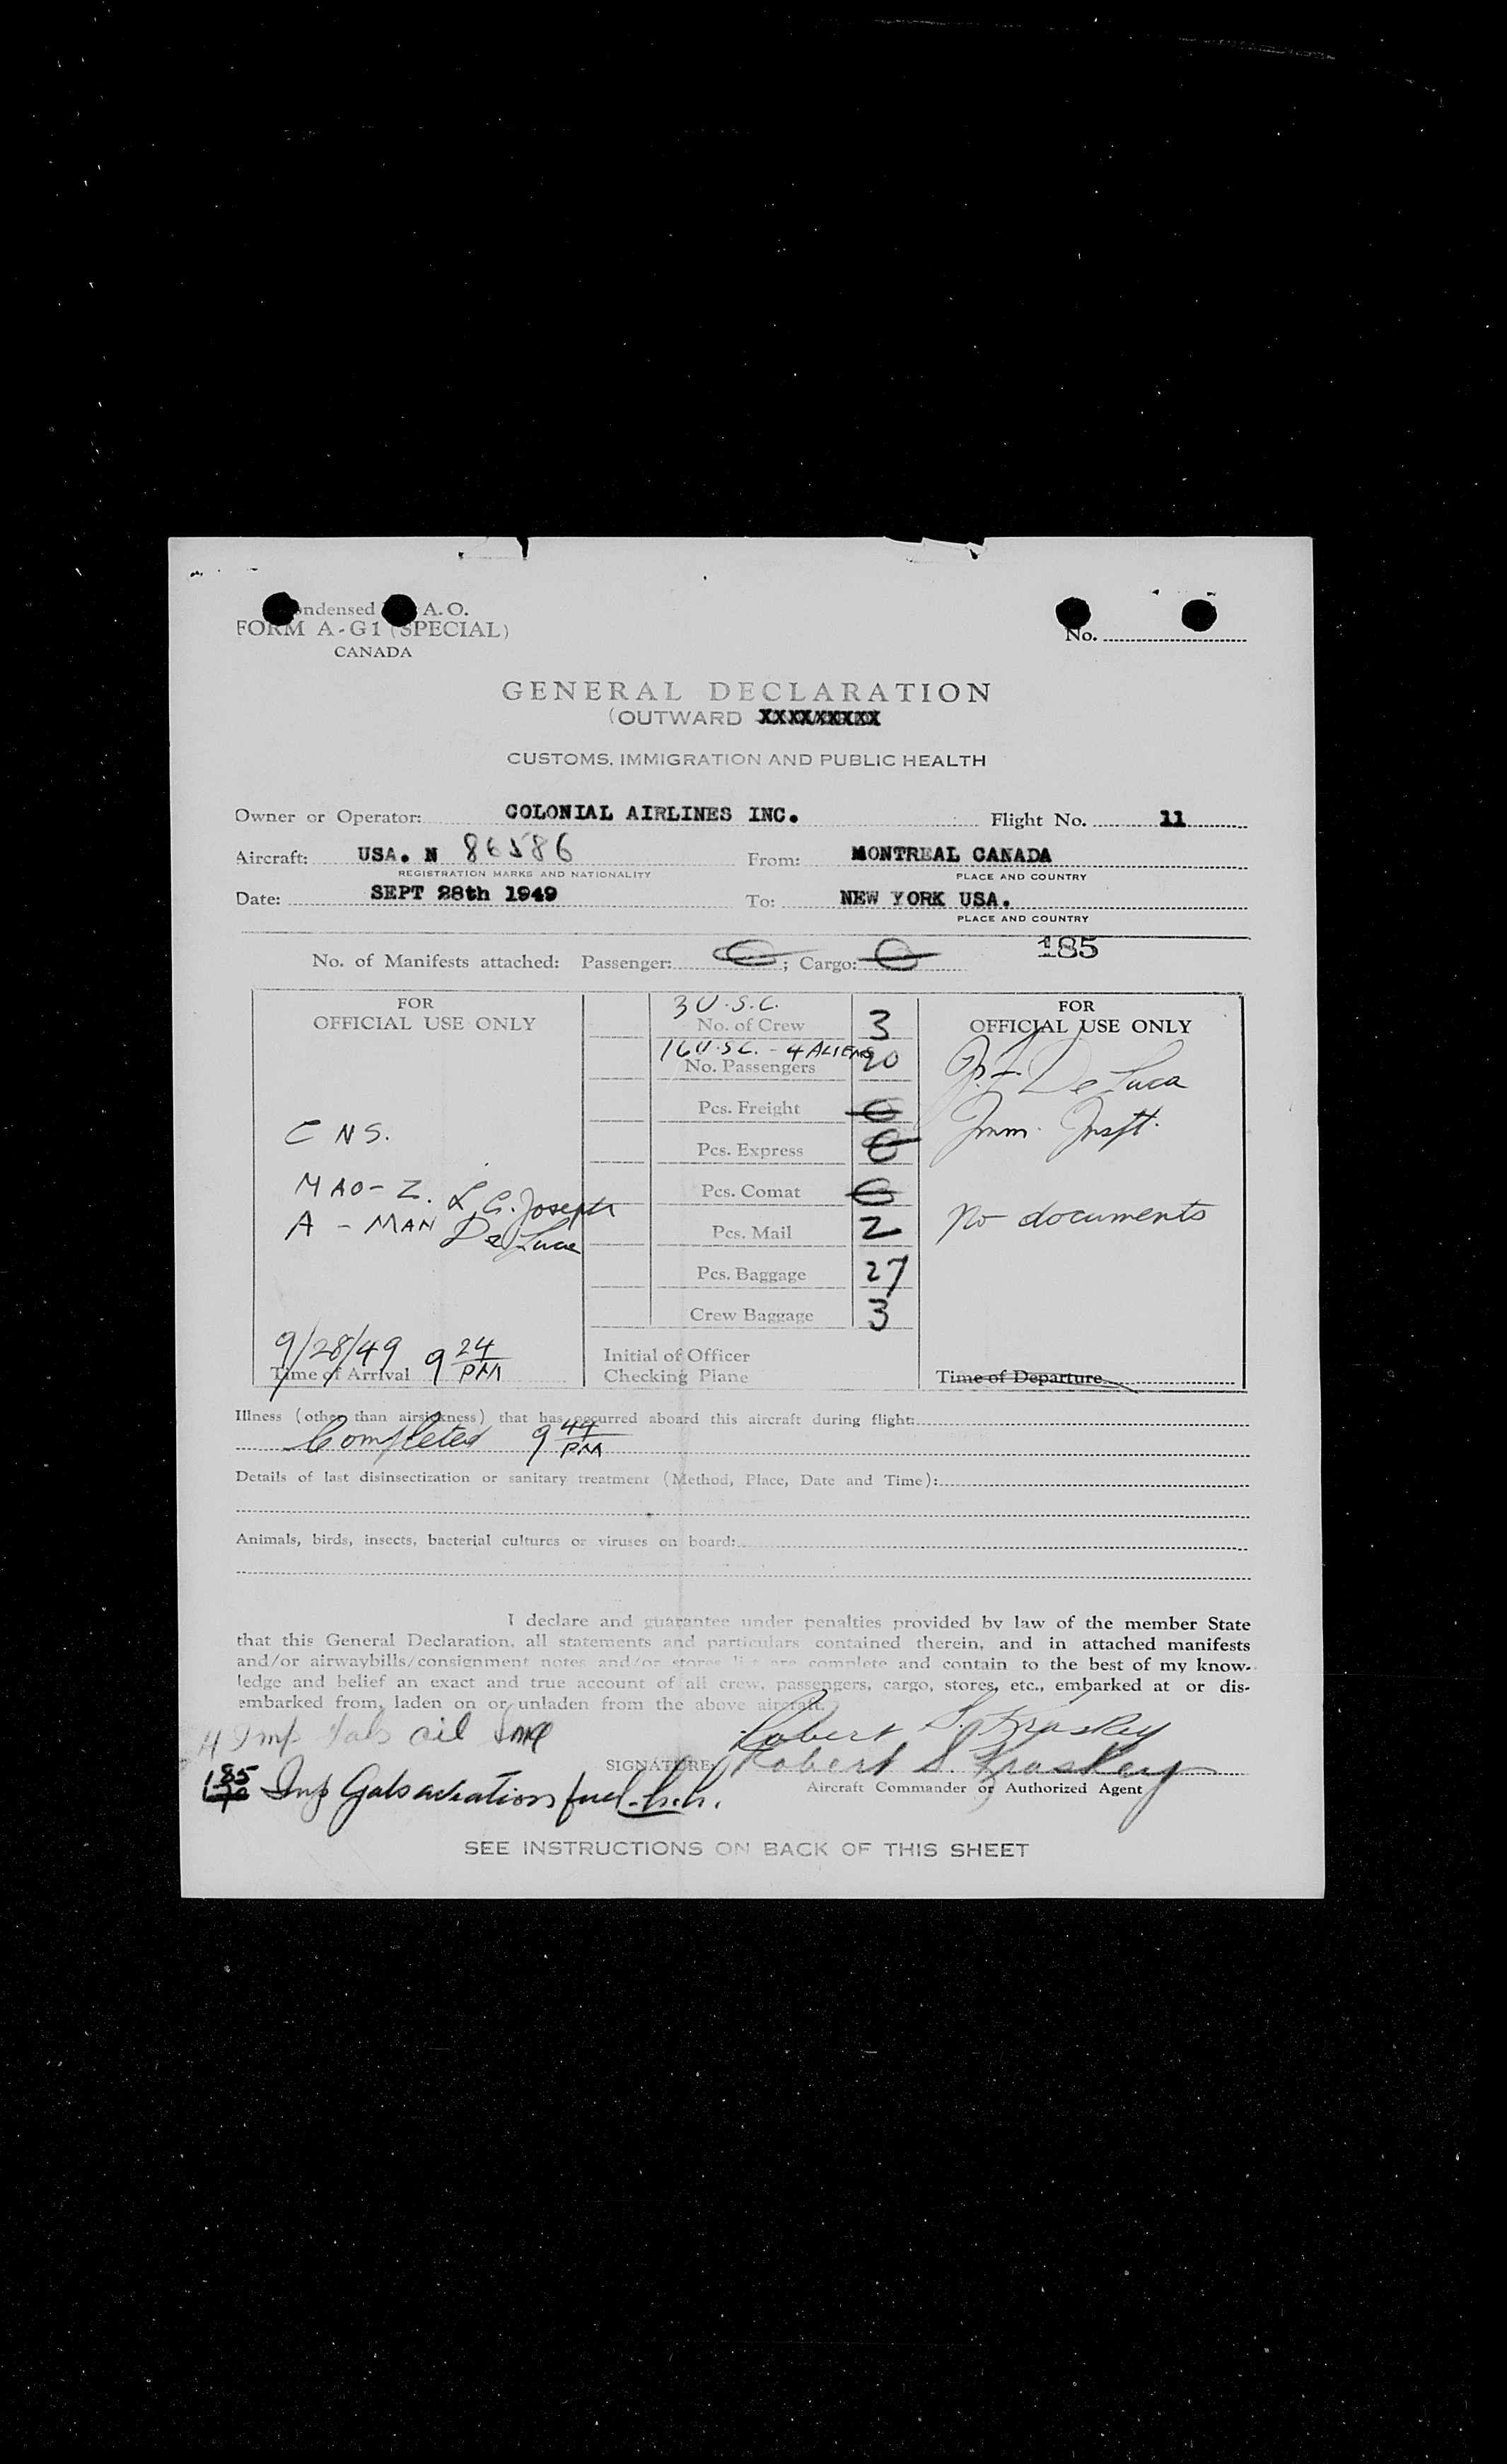 ondensed A.O.
FORM A-G1 (SPECIAL)
CANADA
No.
GENERAL DECLARATION
(OUTWARD XXXXXXXXX
CUSTOMS, IMMIGRATION AND PUBLIC HEALTH
Owner or Operator: COLONIAL AIRLINES INC. Flight No. 11
Aircraft: USA. N 86586 From: MONTREAL CANADA
REGISTRATION MARKS AND NATIONALITY PLACE AND COUNTRY
Date: SEPT 28th 1949 To: NEW YORK USA.
PLACE AND COUNTRY
185
No. of Manifests attached: Passenger: 0; Cargo: 0
FOR
OFFICIAL USE ONLY
C N S.
MAO-Z. L.G. Joseph
A - MAN De Luca
9/28/49 9 24 PM
Time of Arrival
3 U.S.C.
No. of Crew 3
16 U.S.C. - 4 ALIENS
No. Passengers 20
Pcs. Freight 0
Pcs. Express 0
Pcs. Comat 0
Pcs. Mail 2
Pcs. Baggage 27
Crew Baggage 3
Initial of Officer
Checking Plane
FOR
OFFICIAL USE ONLY
De Luca
Imm. Inspt.
No documents
Time of Departure
Illness (other than airsickness) that has occurred aboard this aircraft during flight:
Completed 9 44 PM
Details of last disinsectization or sanitary treatment (Method, Place, Date and Time):
Animals, birds, insects, bacterial cultures or viruses on board:
I declare and guarantee under penalties provided by law of the member State
that this General Declaration, all statements and particulars contained therein, and in attached manifests
and/or airwaybills/consignment notes and/or stores list are complete and contain to the best of my know-
ledge and belief an exact and true account of all crew, passengers, cargo, stores, etc., embarked at or dis-
embarked from, laden on or unladen from the above aircraft.
4 Imp Gals oil
Robert S. Fraskey
SIGNATURE: Robert S. Fraskey
Aircraft Commander or Authorized Agent
185 Imp Gals aviation fuel. h.h.
SEE INSTRUCTIONS ON BACK OF THIS SHEET